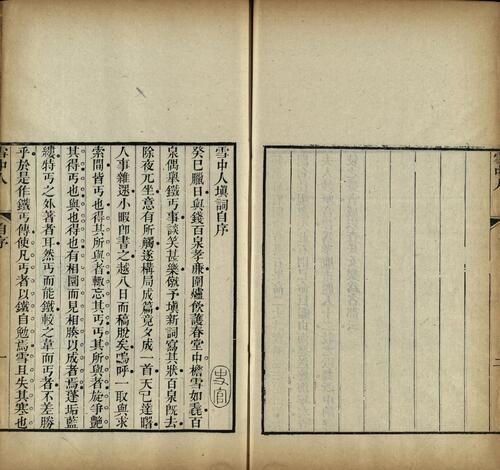 雪中人塡詞自序
癸巳臘日與錢百泉孝廉圍爐飲護春堂中檐雪如毳百
泉偶舉鐵丐事談笑甚樂慫予塡新詞寫其狀百泉旣去
除夜兀坐意有所觸遂構局成篇竟夕成一首天已達曙
人事雜遝小暇卽書之越八日而稿脫矣嗚呼一取與求
索間皆丐也得其所與者輒忘其丐丐其所與者旋爭艷
其得丐也與也得也有相圜而見相勝以成者焉蓬垢藍
縷特丐之外著者耳然丐而能鐵較之韋而丐者不差勝
乎於是作鐵丐傳使凡丐者以鐵自勉焉雪且失其寒也
雪中人
自序
一